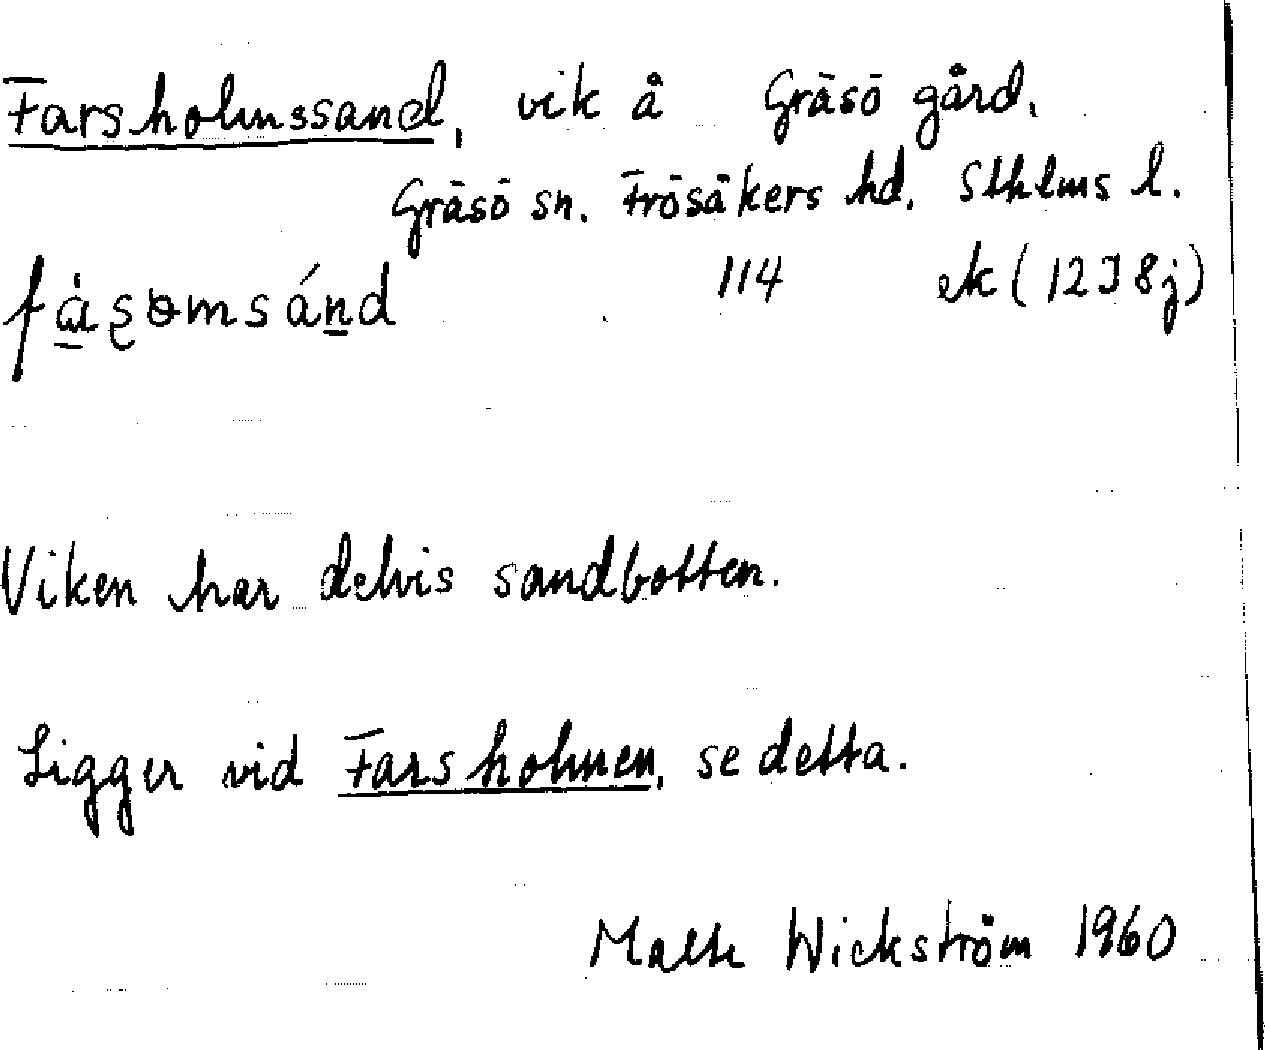 Farsholmssand, vik å Gräsö gård.
Gräsö sn. Frösåkers hd. Sthlms l.
fàṣɵmsánd 114 ek (12I8j)
Viken har delvis sandbotten.
Ligger vid Farsholmen, se detta.
Malte Wickström 1960